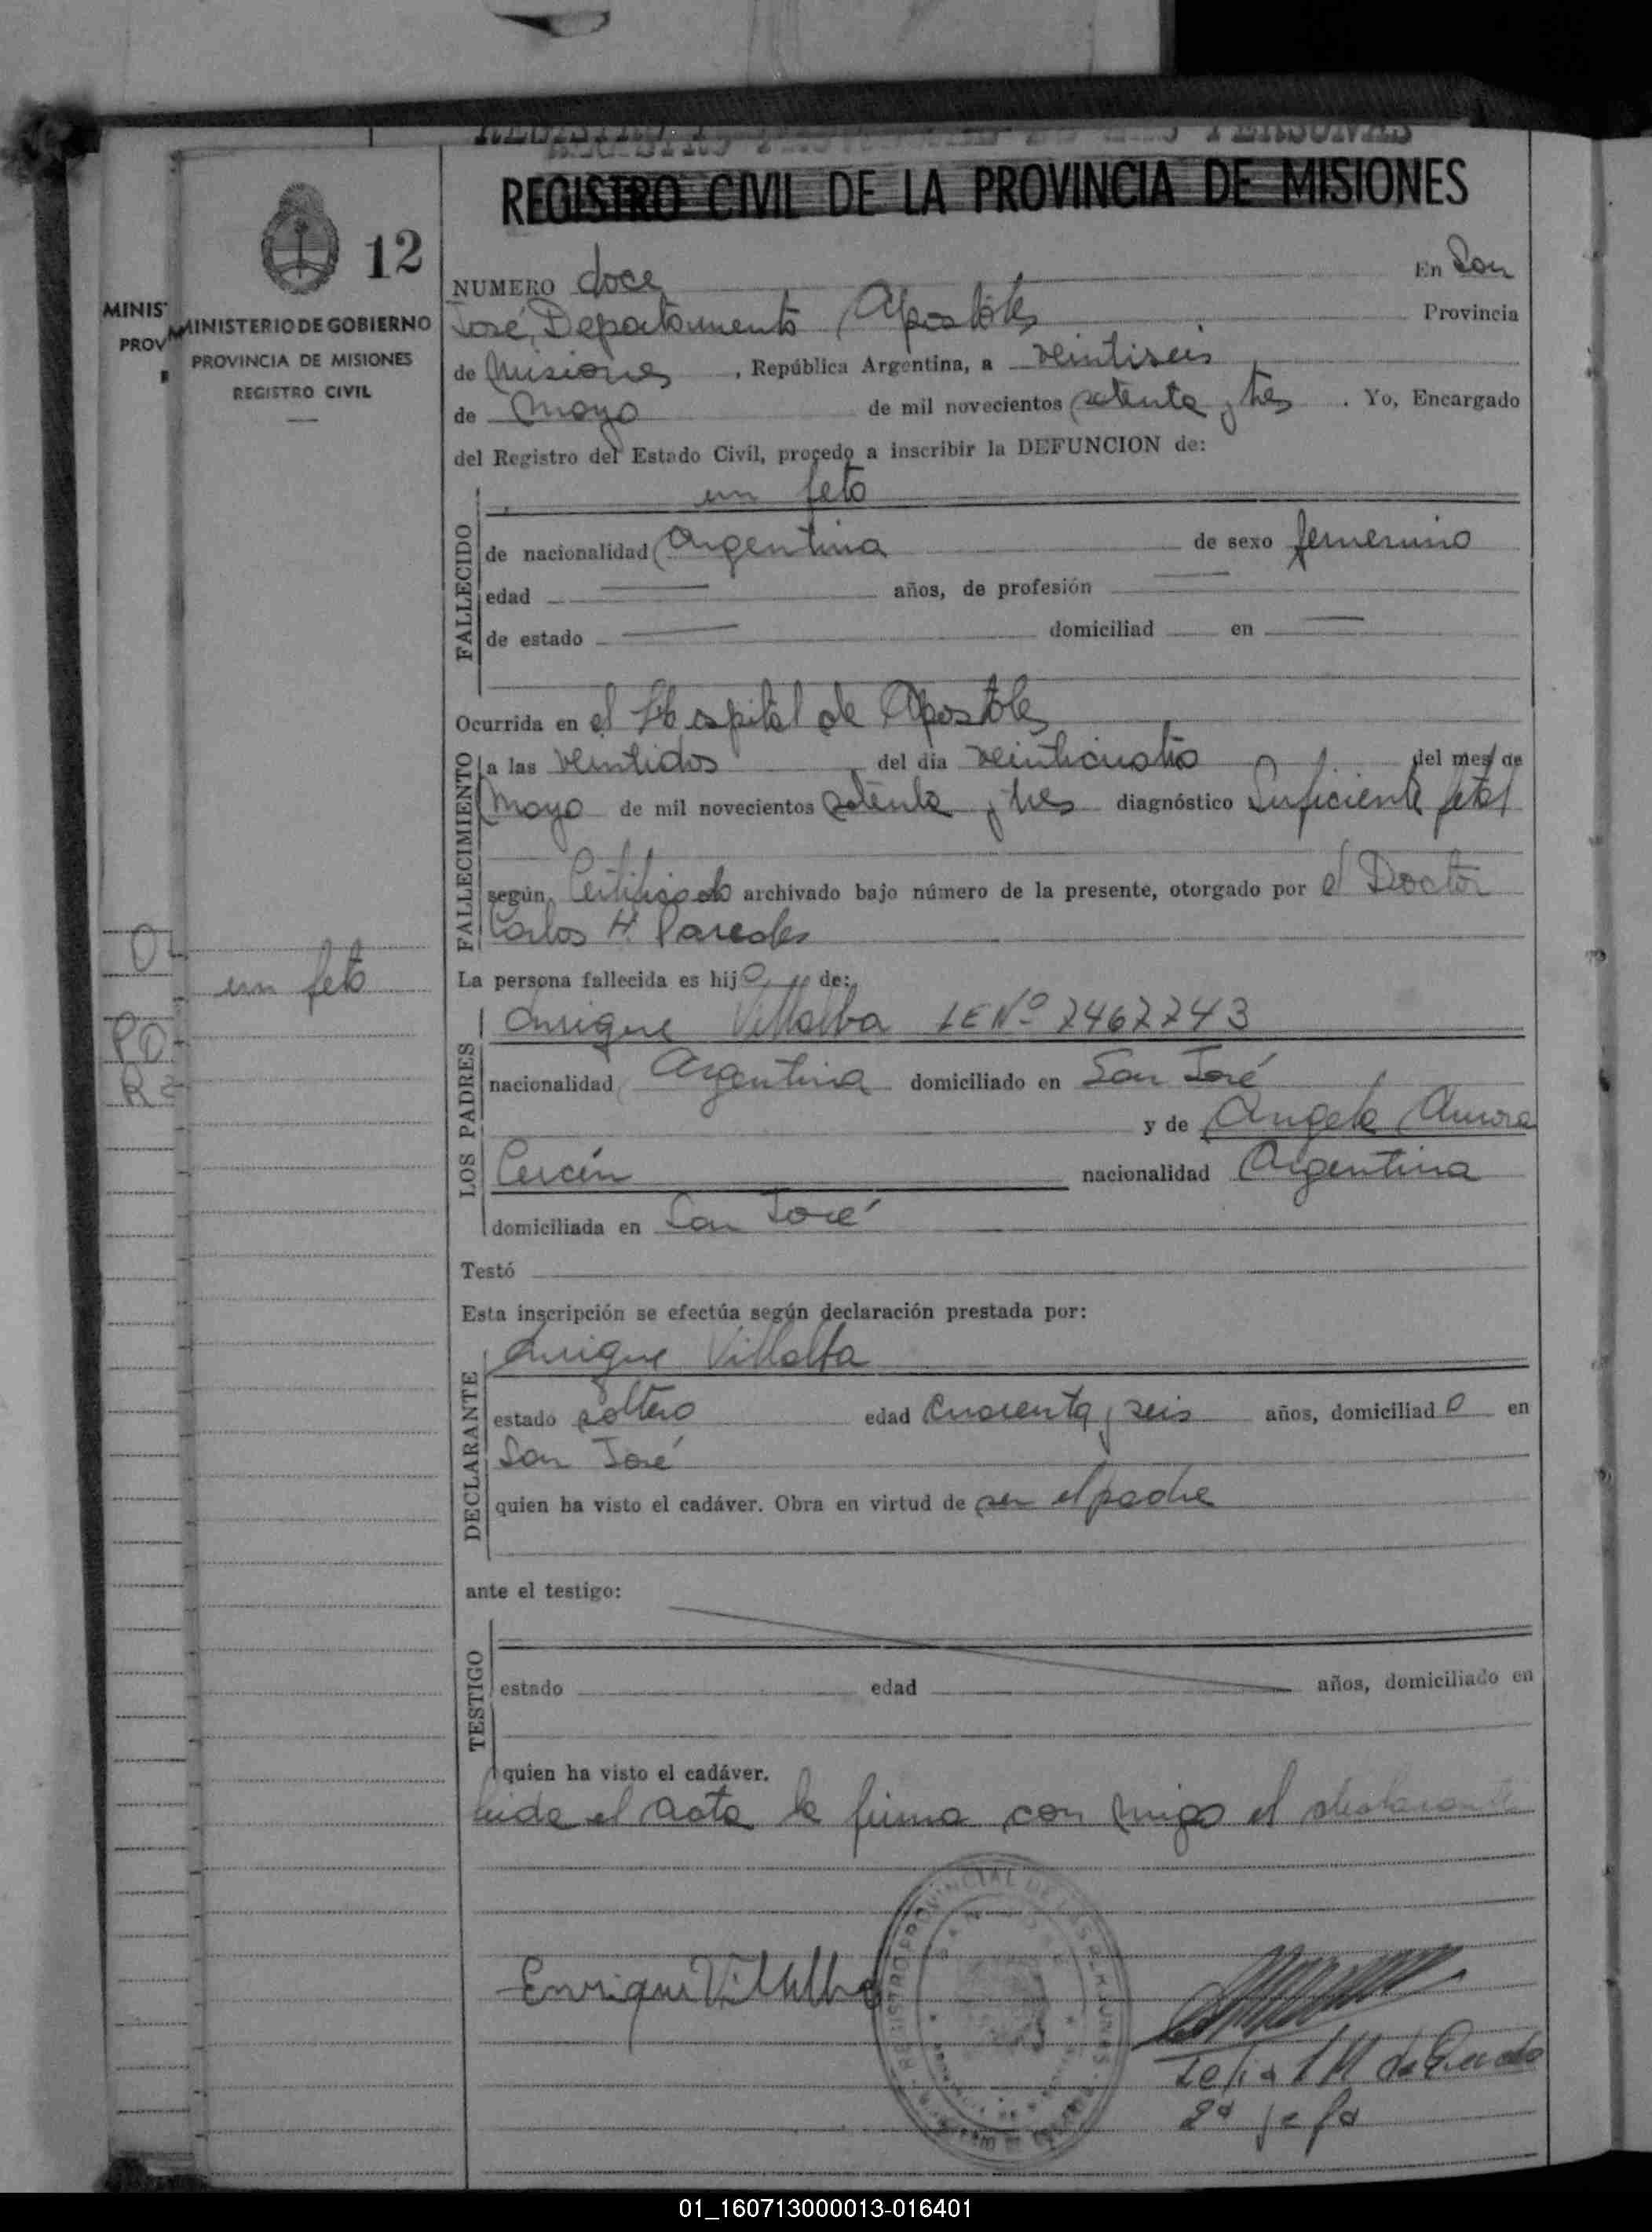 REGISTRO CIVIL DE LA PROVINCIA DE MISIONES
12
MINISTERIO DE GOBIERNO
PROVINCIA DE MISIONES
REGISTRO CIVIL
MINIS
PROV
NUMERO doce En San
José, Departamento Apostoles Provincia
de Misiones, República Argentina, a veintiseis
de Mayo de mil novecientos setenta y tres. Yo, Encargado
del Registro del Estado Civil, procedo a inscribir la DEFUNCION de:
un feto
FALLECIDO
de nacionalidad Argentina de sexo femenino
edad años, de profesión
de estado domiciliad en
Ocurrida en el Hospital de Apostoles
FALLECIMIENTO
a las veintidos del día veinticuatro del mes de
Mayo de mil novecientos setenta y tres diagnóstico Suficiente fetal
según Certificado archivado bajo número de la presente, otorgado por el Doctor
Carlos H. Paredes
un feto
La persona fallecida es hija de:
LOS PADRES
Enrique Villalba LE Nº 7462743
nacionalidad Argentina domiciliado en San José
y de Angela Aurora
nacionalidad Argentina
domiciliada en San José
Testó
Esta inscripción se efectúa según declaración prestada por:
DECLARANTE
Enrique Villalba
estado soltero edad cuarenta y seis años, domiciliado en
San José
quien ha visto el cadáver. Obra en virtud de ser el padre
ante el testigo:
TESTIGO
estado edad años, domiciliado en
quien ha visto el cadáver.
leida el acta la firma con migo el declarante
Enrique Villalba
2ª jefa
01_160713000013-016401